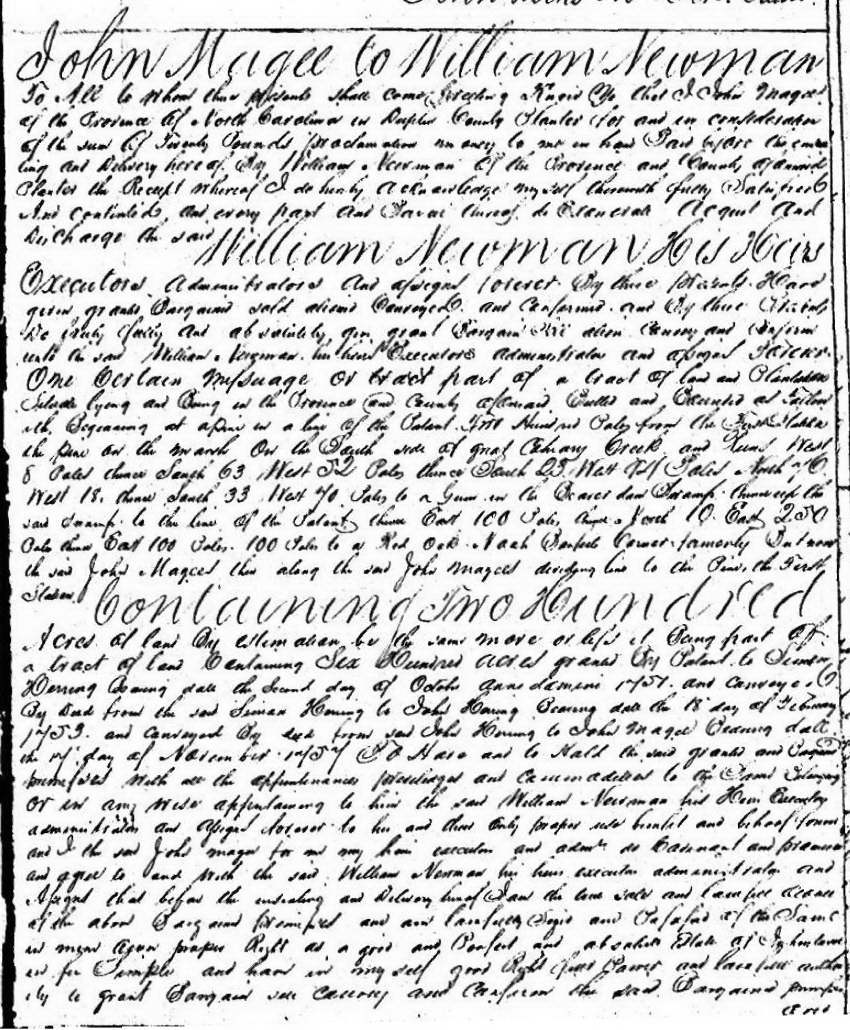 John Magee to William Newman
To All to whom these presents shall come Greeting Know Ye that I John Magee
of the Province of North Carolina in Duplin County Planter for and in consideration
of the sum of Twenty Pounds proclamation money to me in hand Paid before the ensea
ling and Delivery hereof By William Newman of the Province and County aforesaid
Planter the Receipt whereof I do hereby acknowledge myself therewith fully Satisfied
And contented and every part and Parcel thereof do Exonerate Acquit and
Discharge the said
William Newman His Heirs
Executors Administrators And assigns forever By these presents Have
given granted Bargained sold aliened Conveyed and Confirmed and By these Presents
Do freely fully and absolutely give grant Bargain Sell alien Convey and Confirm
unto the said William Newman his heirs Executors administrators and assigns Forever
One Certain Messuage or tract part of a tract of land and Plantation
Situate lying and Being in the Province and County aforesaid Butted and Bounded as follow
eth, Beginning at a pine in a line of the Patent Hundred Poles from the First Station
the pine on the marsh On the South side of great Creek and Runs West
8 Poles thence South 63 West 52 Poles thence South 23 West Poles North 76
West 18. thence South 33 West 70 Poles to a Gum in the Beaver dam Swamp thence up the
said swamp to the line of the Patent thence East 100 Poles thence North 10 East 250
Poles thence East 100 Poles. 100 Poles to a Red Oak Corner formerly But now
the said John Magees then along the said John Magees dividing line to the Pine, the First
Station.
Containing Two Hundred
Acres of land By estimation be the same more or less it Being part of
a tract of land Containing Six Hundred acres granted By Patent to Simon
Herring Bearing date the Second day of October annodomini 1751. and conveyed
By Deed from the said Simon Herring to John Herring Bearing date the 18 day of February
1753. and conveyed By deed from said John Herring to John Magee Bearing date
the 17 day of November 1757 To Have and to Hold the said granted and Bargained
premises with all the appurtenances priviledges and commodities to the Same Belonging
or in any wise appertaining to him the said William Newman his Heirs Executors
administrators and assigns forever to his and their only proper use benefit and behoof forever
and I the said John magee for me my heirs executors and admrs do Covenant and promise
and agree to and with the said William Newman his heirs executors administrators and
Assigns that before the ensealing and Delivery hereof I am the true sole and lawfull owner
of the above Bargained Premises and am lawfully Seized and Possessed of the Same
in mine Own proper Right as a good and Perfect and absolute Estate of Inheritance
in fee Simple and have in my self good Right full Power and lawfull autho
rity to grant Bargain sell convey and Confirm the said Bargained premises